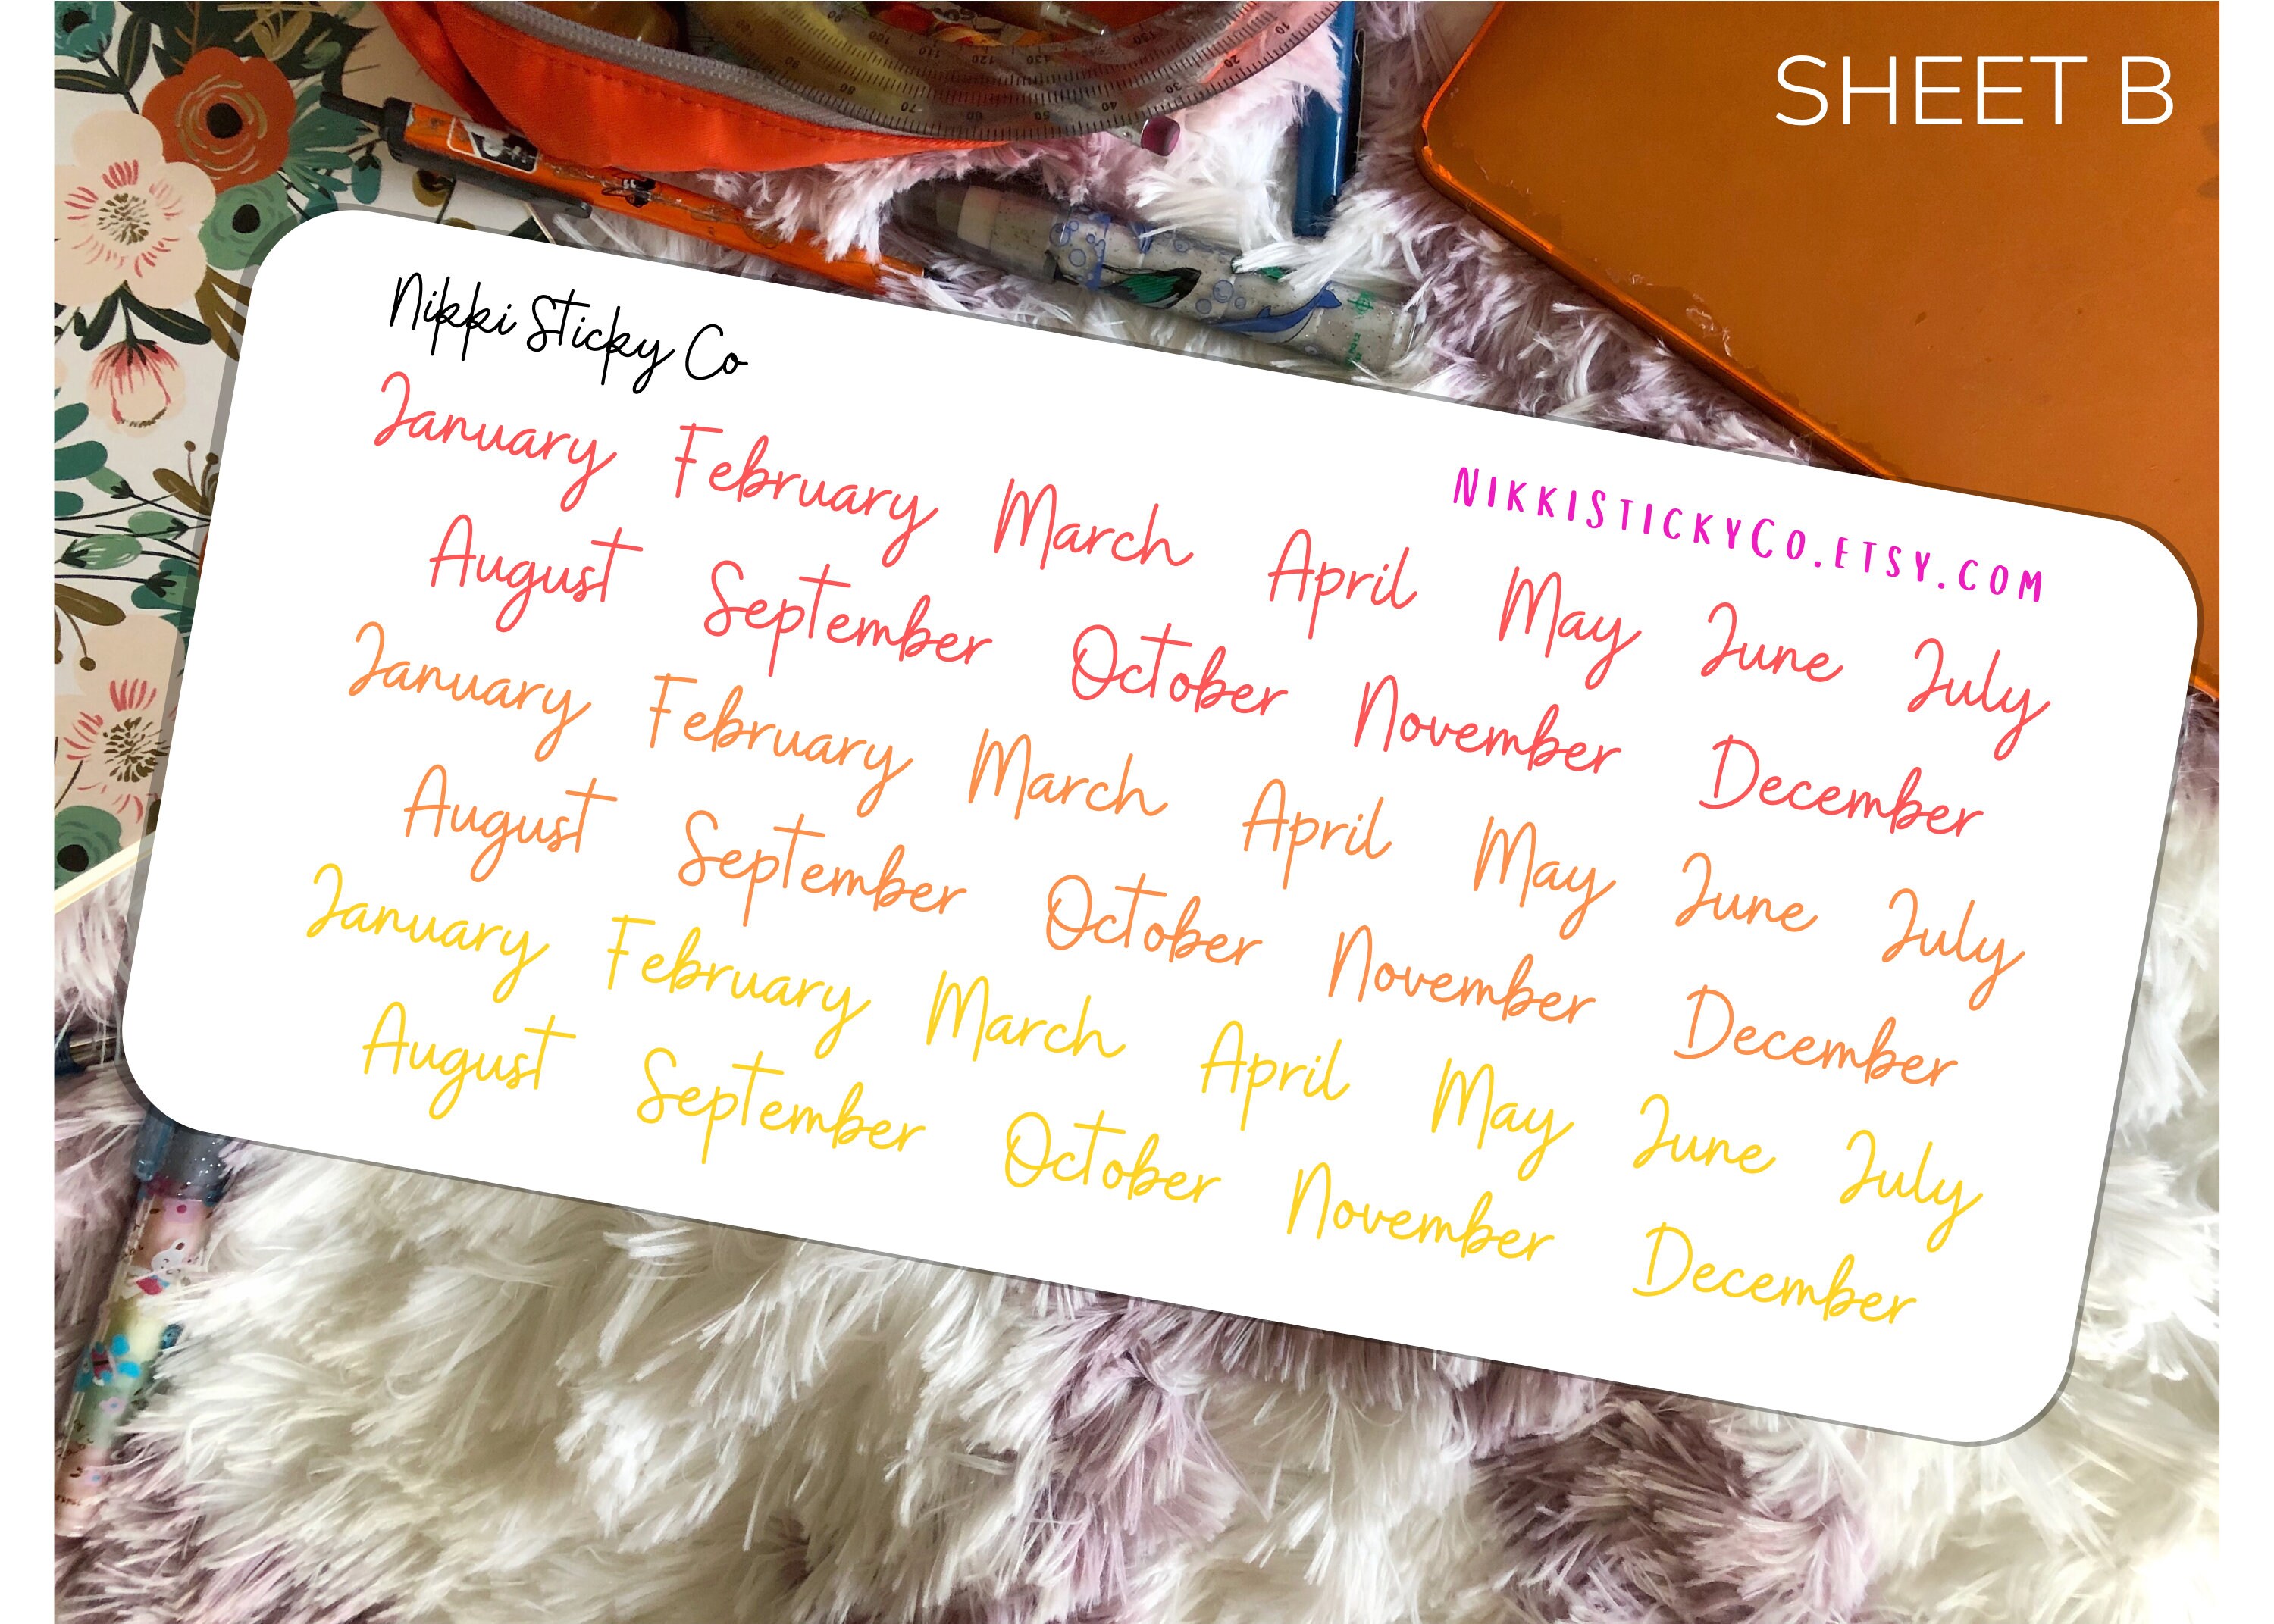 SHEET B
Nikki Sticky Co
NIKKISTICKYCO.ETSY.COM
January February March April May June July
August September October November December
January February March April May June July
August September October November December
January February March April May June July
August September October November December